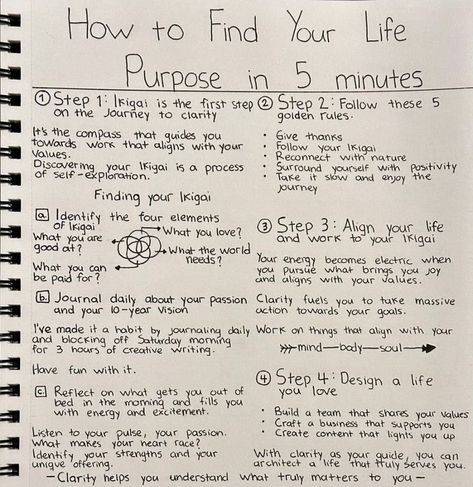 How to Find Your Life
Purpose in 5 minutes
① Step 1: Ikigai is the first step
on the Journey to clarity
It's the compass that guides you
towards work that aligns with your
values.
Discovering your Ikigai is a process
of self-exploration.
Finding your Ikigai
a Identify the four elements
of Ikigai
What you love?
What you are
good at?
What the world
needs?
What you can
be paid for?
b Journal daily about your passion
and your 10-year vision
I've made it a habit by journaling daily
and blocking off Saturday morning
for 3 hours of creative writing.
Have fun with it.
c Reflect on what gets you out of
bed in the morning and fills you
with energy and excitement.
Listen to your pulse, your passion.
What makes your heart race?
Identify your strengths and your
unique offering.
② Step 2: Follow these 5
golden rules.
• Give thanks
• Follow your Ikigai
• Reconnect with nature
• Surround yourself with positivity
• Take it slow and enjoy the
journey
③ Step 3: Align your life
and work to your Ikigai
Your energy becomes electric when
you pursue what brings you joy
and aligns with your values.
Clarity fuels you to take massive
action towards your goals.
Work on things that align with your
mind—body—soul
④ Step 4: Design a life
you love
• Build a team that shares your values
• Craft a business that supports you
• Create content that lights you up
With clarity as your guide, you can
architect a life that truly serves you.
—Clarity helps you understand what truly matters to you—